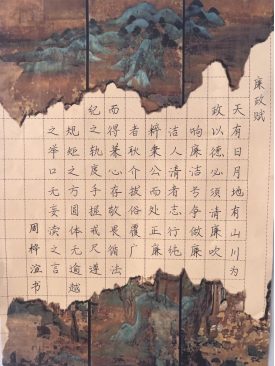 廉政赋
天有日月地有山川为
政以德必须请廉吹
响廉洁号争做廉
洁人清者志行纯
粹秉公而处正廉
者秋介拔俗覆广
而得篆心存敬畏循法
纪之轨度手握戒尺遵
规矩之方圆体无逾越
之举口无妄渎之言
周梓渲书